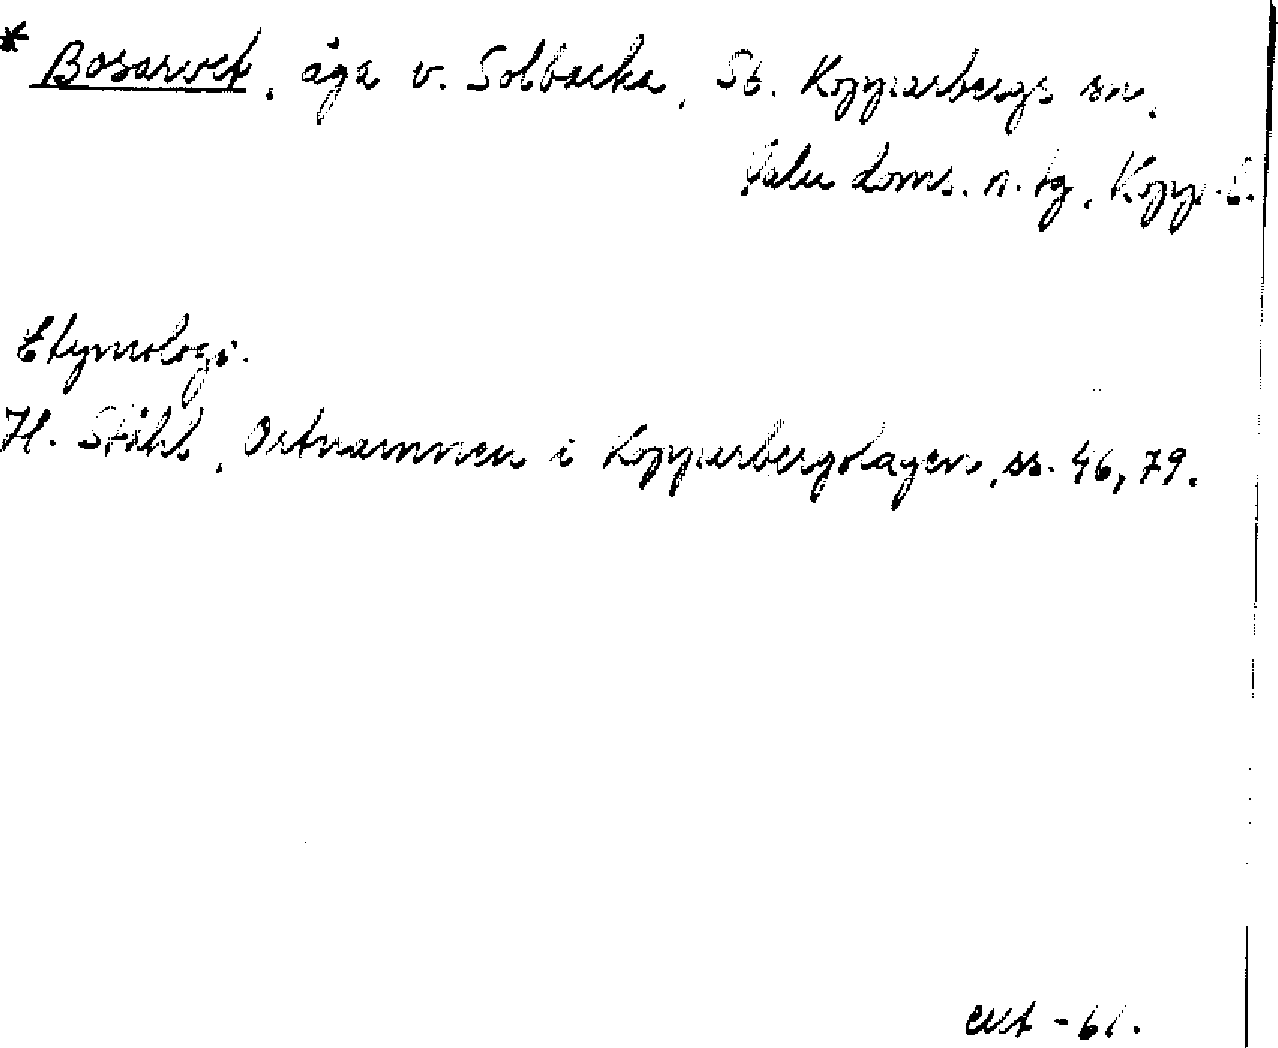 * Bosarvet, äga v. Solbacka, St. Kopparbergs sn,
Falu doms. n. tg, Kopp. l.
Etymologi.
H. Ståhl, Ortnamnen i Kopparbergslagen, ss. 46, 79.
-61.